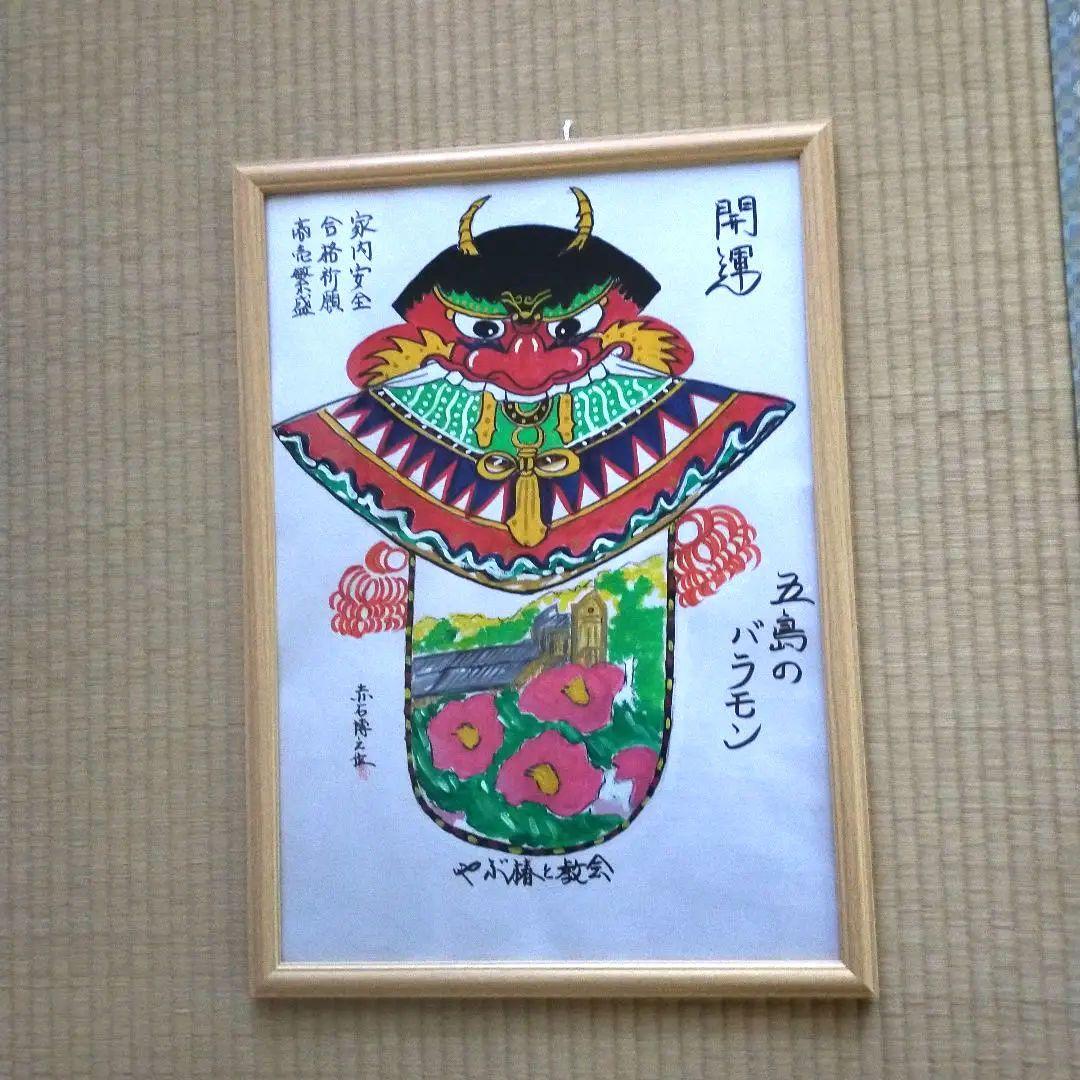 開運
家内安全
合格祈願
商売繁盛
五島の
バラモン
赤石博之
やぶ椿と教会